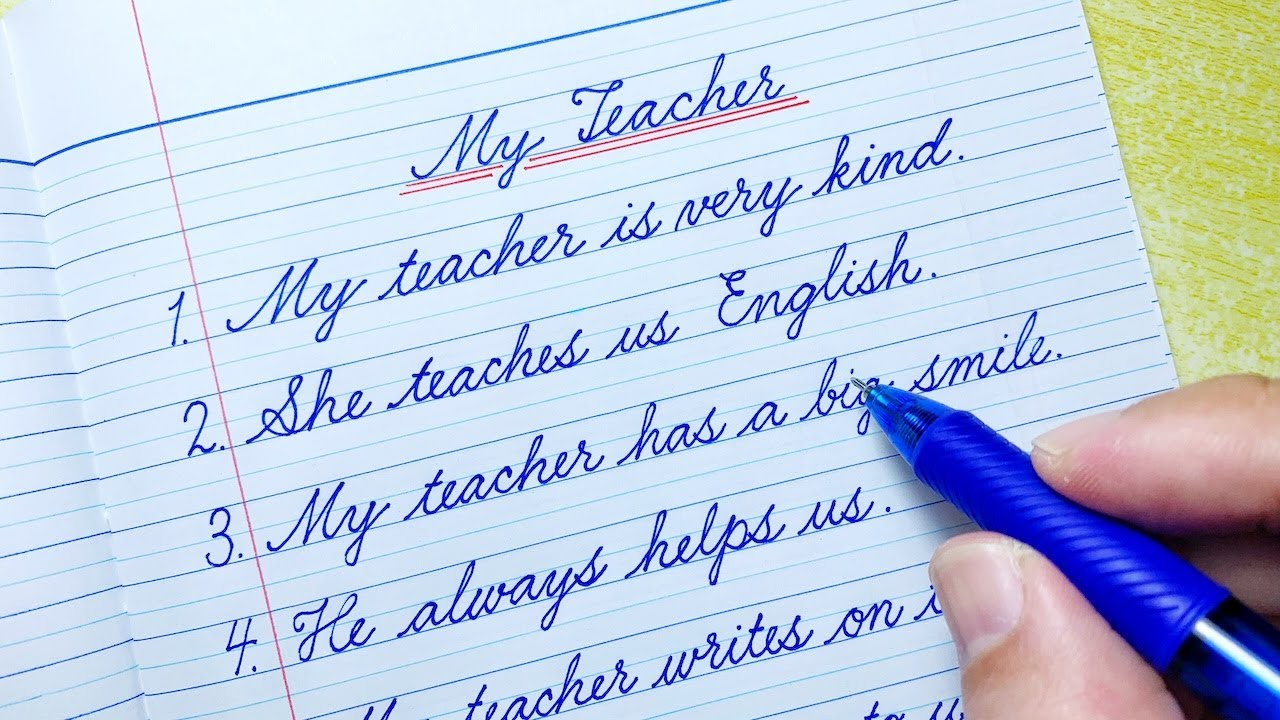 My Teacher
1. My teacher is very kind.
2. She teaches us English.
3. My teacher has a big smile.
4. He always helps us.
My teacher writes on
to